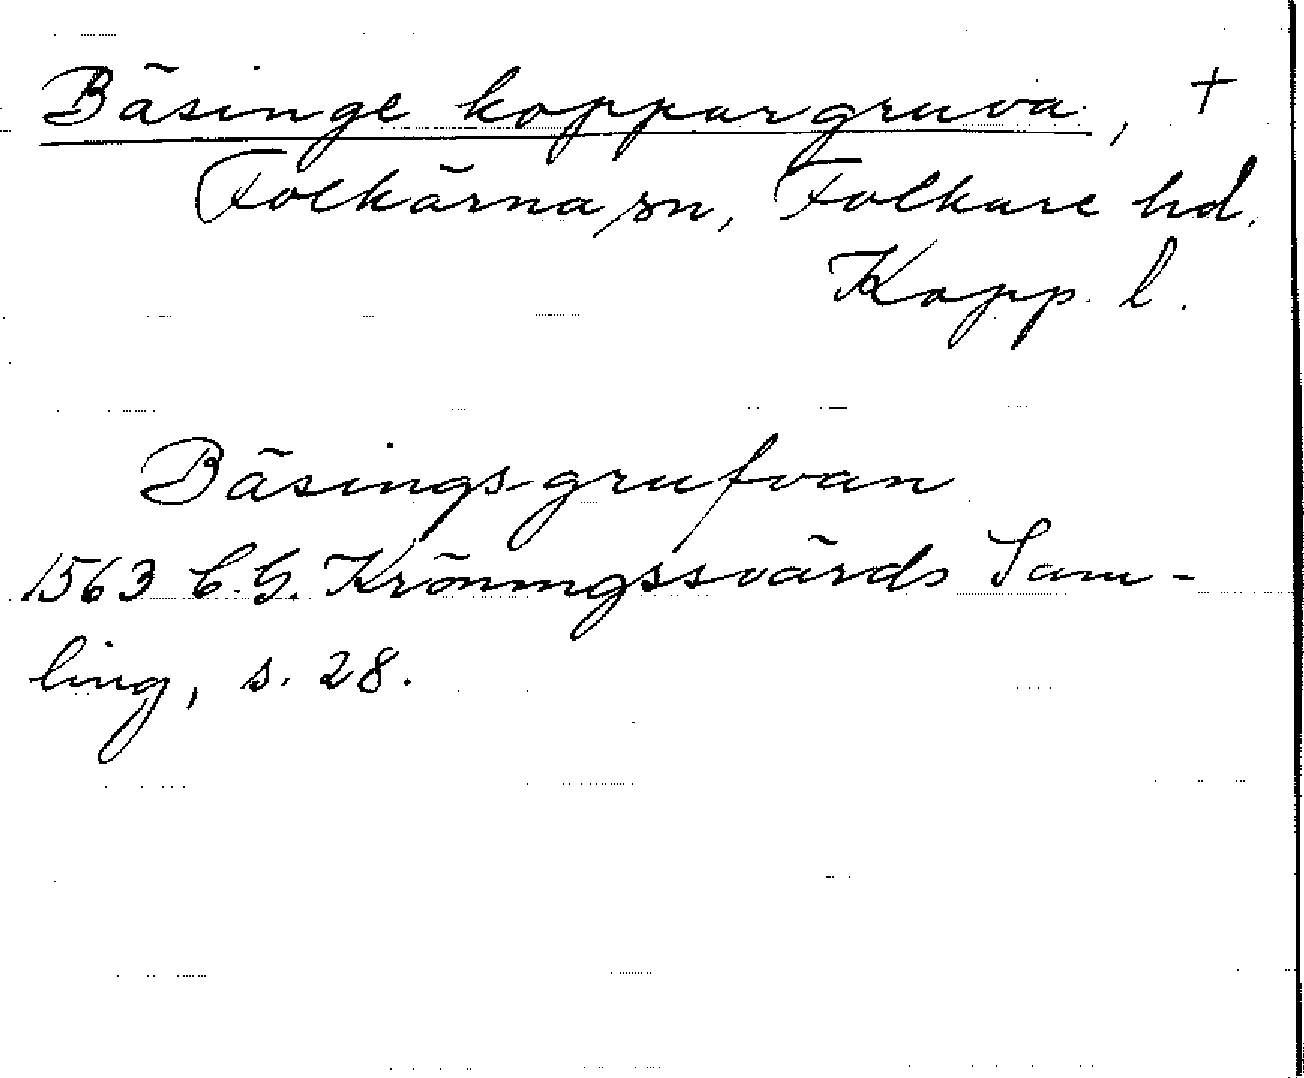 Bäsinge koppargruva, +
Folkärna sn, Folkare hd.
Kopp. l.
Bäsings-grufvan
1563 C.G. Kröningssvärds Sam-
ling, s. 28.